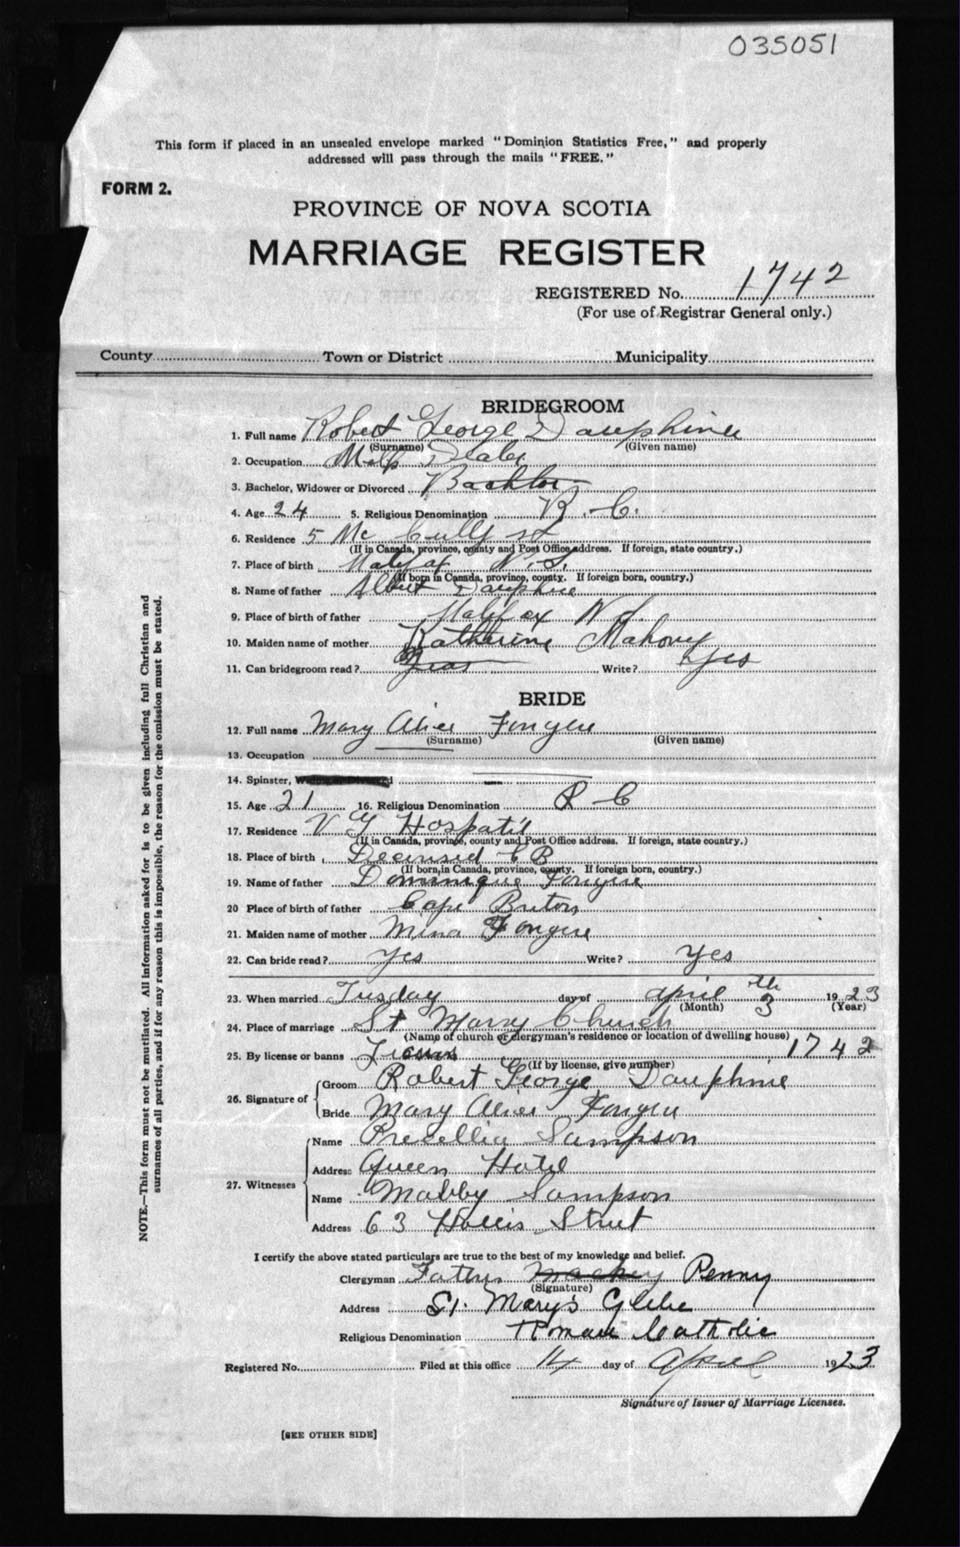 035051
This form if placed in an unsealed envelope marked "Dominion Statistics Free," and properly
addressed will pass through the mails "FREE."
FORM 2.
PROVINCE OF NOVA SCOTIA
MARRIAGE REGISTER
REGISTERED No. 1742
(For use of Registrar General only.)
County Town or District Municipality
BRIDEGROOM
1. Full name Robert George Dauphinee
(Surname) (Given name)
2. Occupation
3. Bachelor, Widower or Divorced Bachlor
4. Age 24 5. Religious Denomination R. C.
6. Residence 5 McCully st
(If in Canada, province, county and Post Office address. If foreign, state country.)
7. Place of birth Halifax N.S.
(If born in Canada, province, county. If foreign born, country.)
8. Name of father Albert Dauphine
9. Place of birth of father Halifax N.S.
10. Maiden name of mother Katherine Mahony
11. Can bridegroom read? Write? Yes
BRIDE
12. Full name Mary Alice Fougere
(Surname) (Given name)
13. Occupation
14. Spinster,
15. Age 21 16. Religious Denomination R C
17. Residence V G Hospatil
(If in Canada, province, county and Post Office address. If foreign, state country.)
18. Place of birth C B
(If born in Canada, province, county. If foreign born, country.)
19. Name of father Dominique Fougere
20 Place of birth of father Cape Breton
21. Maiden name of mother Mina Fougere
22. Can bride read? Yes Write? Yes
23. When married Tusday day of april 3th 1923
(Month) (Year)
24. Place of marriage St Marry Church
(Name of church or clergyman's residence or location of dwelling house)
25. By license or banns 1742
(If by license, give number)
26. Signature of Groom Robert George Dauphinie
Bride Mary Alice Fougere
27. Witnesses Name Precellia Sampson
Address Queen Hotel
Name Mabby Sampson
Address 63 Hollis Street
I certify the above stated particulars are true to the best of my knowledge and belief.
Clergyman Father Mackey Penny
(Signature)
Address St. Mary's Glebe
Religious Denomination Roman Catholic
Registered No. Filed at this office 14 day of April 1923
Signature of Issuer of Marriage Licenses.
[SEE OTHER SIDE]
NOTE.—This form must not be mutilated. All information asked for is to be given including full Christian and
surnames of all parties, and if for any reason this is impossible, the reason for the omission must be stated.